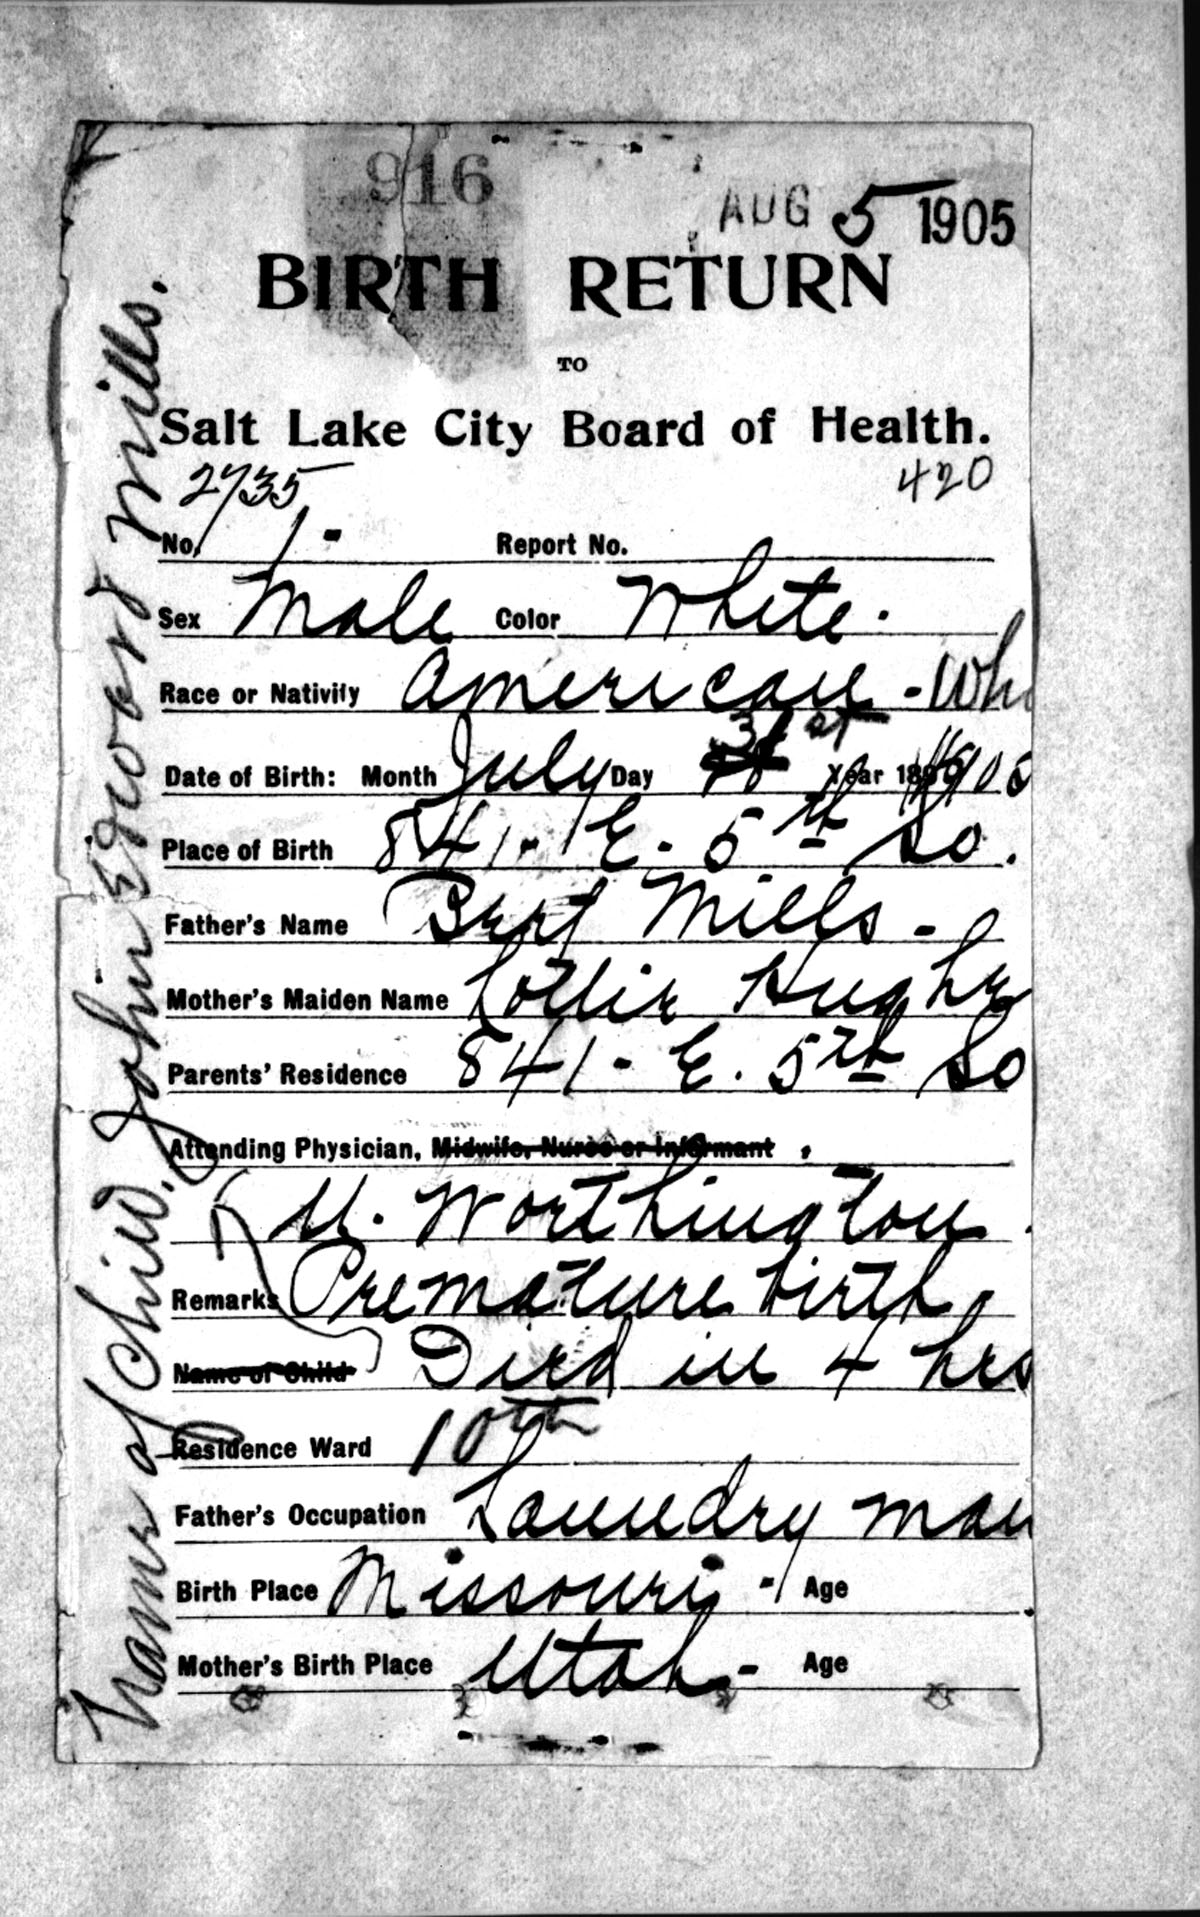 916
AUG 5 1905
BIRTH RETURN
TO
Salt Lake City Board of Health.
2735 420
No. 1 - Report No.
Sex Male Color White.
Race or Nativity American - Whi
Date of Birth: Month July Day 31st Year 1905
Place of Birth 841 - E. 5th So.
Father's Name Bert Mills -
Mother's Maiden Name Lottie Hughe
Parents' Residence 841 - E. 5th So
Attending Physician, Midwife, Nurse or Informant
M. Worthington
Remarks Premature birth.
Name of Child Died in 4 hrs
Residence Ward 10th
Father's Occupation Laundry man
Birth Place Missouri - Age
Mother's Birth Place Utah - Age
Name of Child. John Edward Mills.